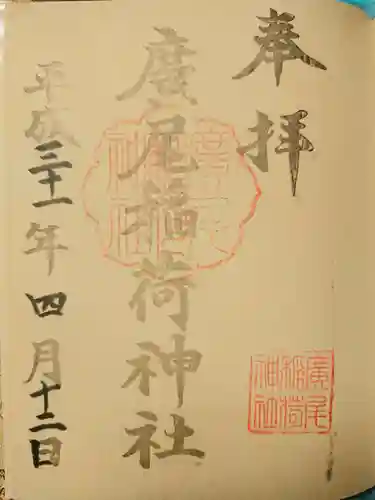 奉拝
廣尾稲荷神社
平成三十一年四月十二日
廣尾
稲荷
神社